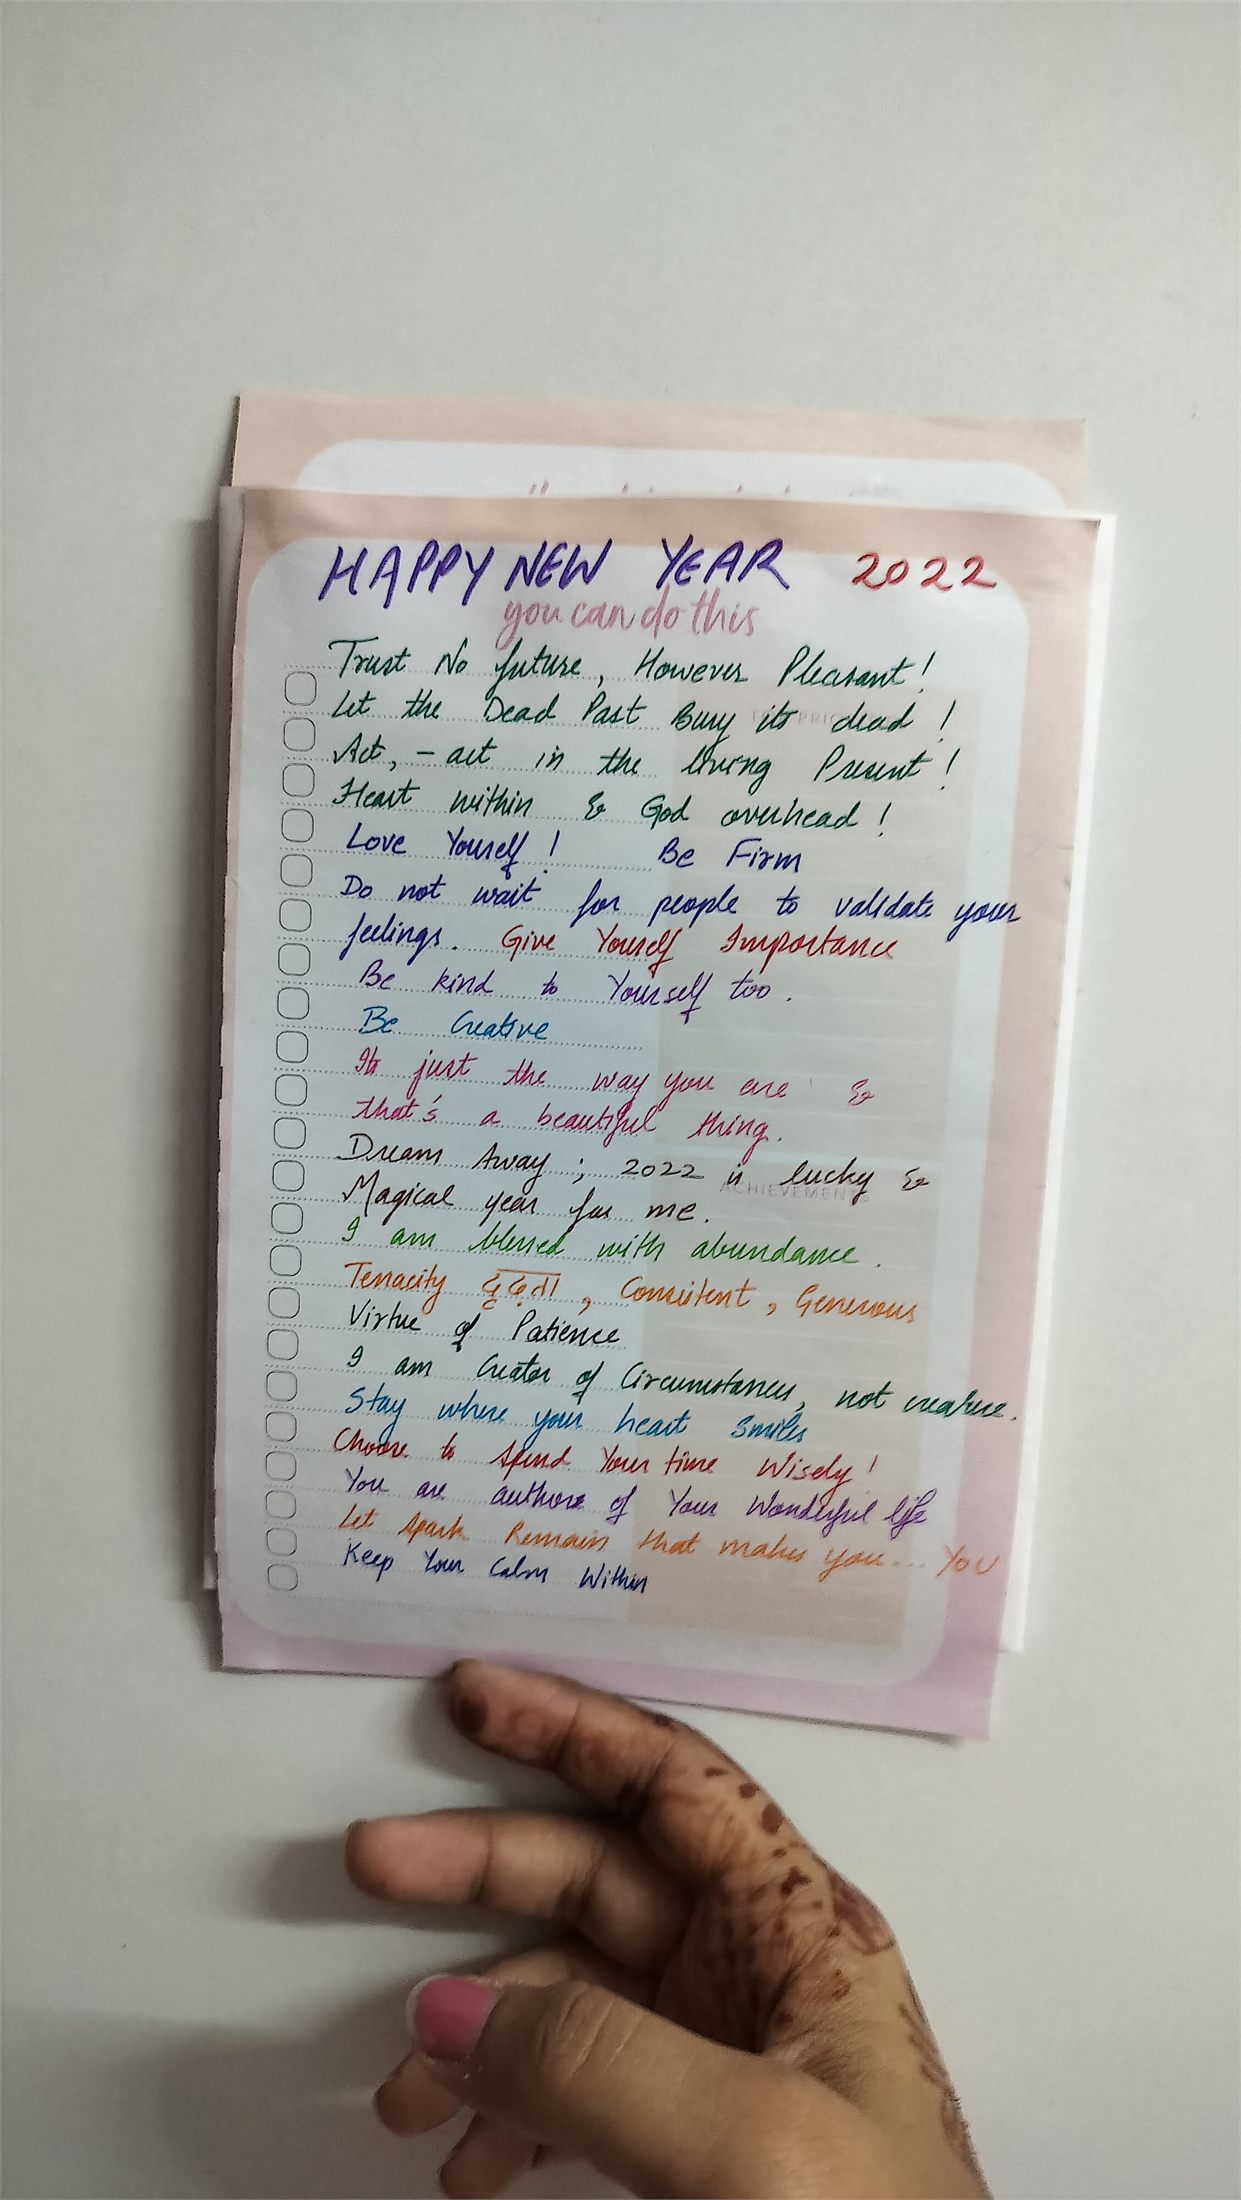 HAPPY NEW YEAR 2022
you can do this
Trust No future, However Pleasant!
Let the Dead Past Bury its dead!
Act, - act in the living Present!
Heart within & God overhead!
Love Yourself! Be Firm
Do not wait for people to validate your
feelings. Give Yourself Importance
Be kind to Yourself too.
Be Creative
Its just the way you are &
that's a beautiful thing.
Dream Away; 2022 is lucky &
ACHIEVEMENTS
Magical year for me.
I am blessed with abundance.
Tenacity दृढ़ता, Consistent, Generous
Virtue of Patience
I am Creator of Circumstances, not creature.
Stay where your heart smiles
Choose to spend Your time Wisely!
You are authore of Your Wonderful life
Let spark Remain that makes you... YOU
Keep Your Calm Within